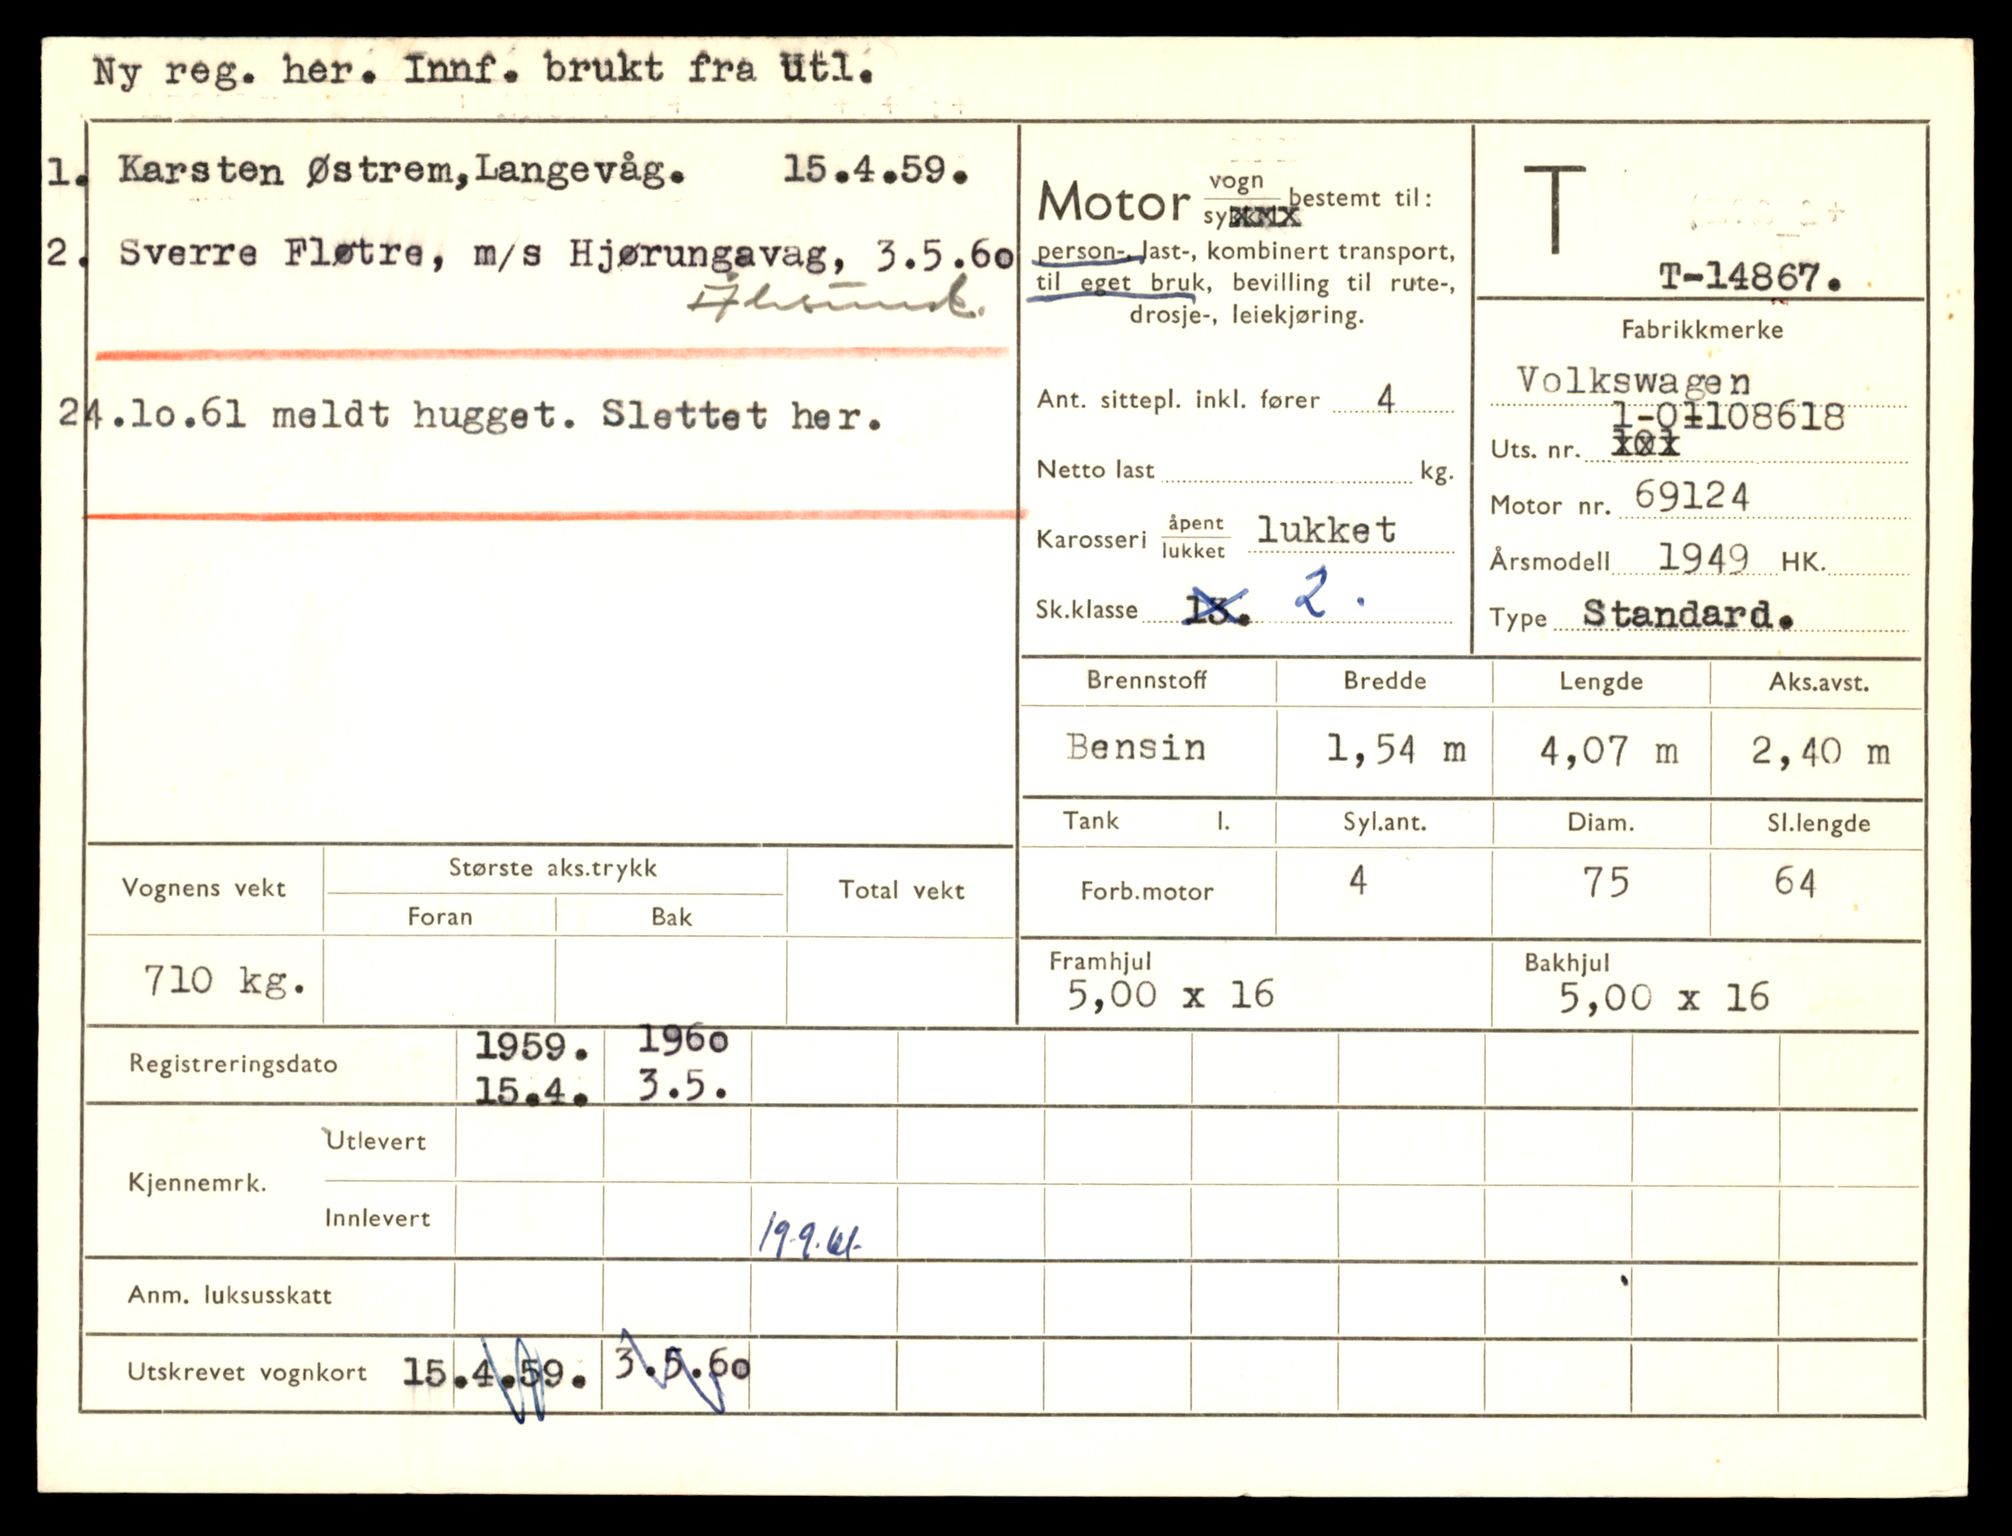 Ny reg. her. Innf. brukt fra Utl.
1. Karsten Østrem, Langevåg. 15.4.59.
2. Sverre Fløtre, m/s Hjørungavag, 3.5.60
Ålesund.
24.10.61 meldt hugget. Slettet her.
Motor vogn bestemt til:
sykkel
person-, last-, kombinert transport,
til eget bruk, bevilling til rute-,
drosje-, leiekjøring.
Ant. sittepl. inkl. fører 4
Netto last kg.
Karosseri åpent lukket
lukket
Sk.klasse 13. 2.
T
T-14867.
Fabrikkmerke
Volkswagen
1-0108618
Uts. nr.
Motor nr. 69124
Årsmodell 1949 HK.
Type Standard.
Brennstoff Bredde Lengde Aks.avst.
Bensin 1,54 m 4,07 m 2,40 m
Tank l. Syl.ant. Diam. Sl.lengde
Forb.motor 4 75 64
Framhjul Bakhjul
5,00 x 16 5,00 x 16
Vognens vekt Største aks.trykk Total vekt
Foran Bak
710 kg.
Registreringsdato 1959. 1960
15.4. 3.5.
Kjennemrk. Utlevert
Innlevert 19.9.61.
Anm. luksusskatt
Utskrevet vognkort 15.4.59. 3.5.60